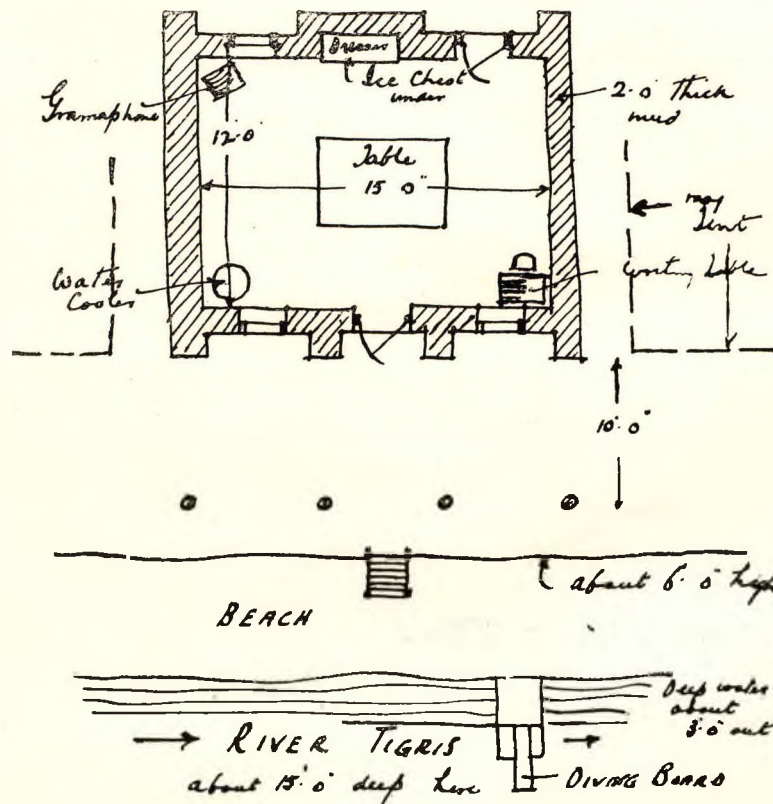 Gramaphone
Ice Chest
under
12'.0
2'.0" thick
mud
Table
15'.0"
my
Tent
Water
Cooler
writing table
10'.0"
about 6'.0" high
BEACH
Deep water
about
3'.0" out
RIVER TIGRIS
about 15'.0" deep here
DIVING BOARD